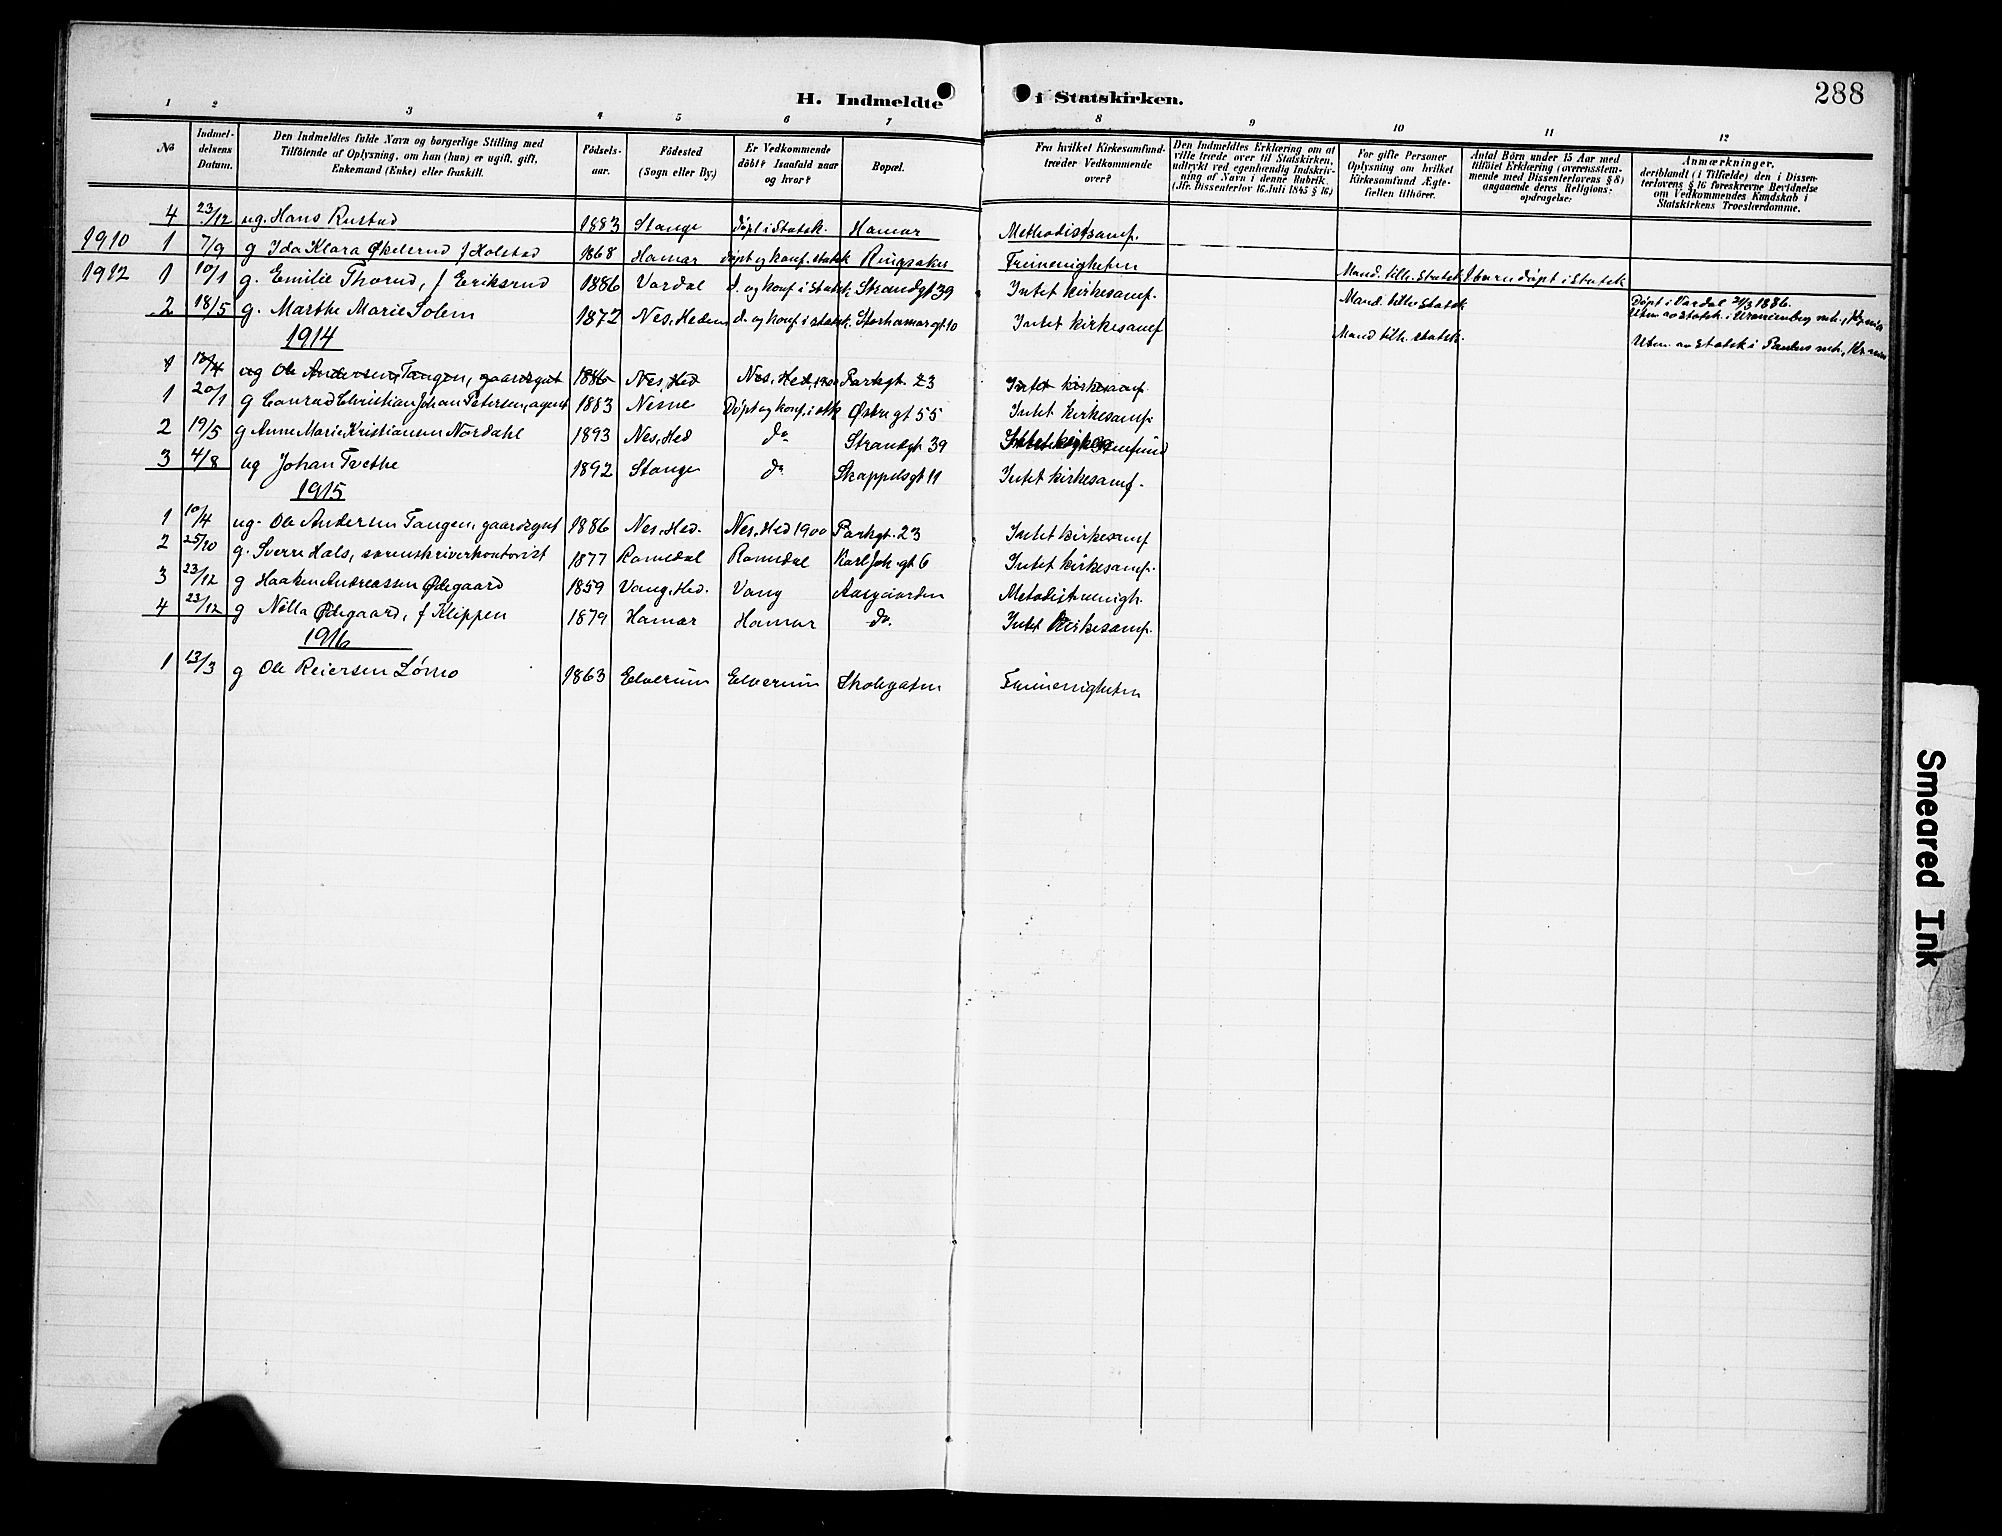 288
H. Indmeldte i Statskirken.
1 2 3 4 5 6 7 8 9 10 11 12
No
Indmeldelsens Datum.
Den Indmeldtes fulde Navn og borgerlige Stilling med Tilföiende af Oplysning, om han (hun) er ugift, gift, Enkemand (Enke) eller fraskilt.
Födsels-aar.
Födested (Sogn eller By.)
Er Vedkommende döbt? Isaafald naar og hvor?
Bopæl.
Fra hvilket Kirkesamfund. træder Vedkommende over?
Den Indmeldtes Erklæring om at ville træde over til Statskirken, udtrykt ved egenhændig Indskrivning af Navn i denne Rubrik. (Jfr. Dissenterlov 16 Juli 1845 § 16)
For gifte Personer Oplysning om hvilket Kirkesamfund Ægtefællen tilhörer.
Antal Börn under 15 Aar med tilföiet Erklæring (overensstemmende med Dissenterlovens § 8) angaaende deres Religionsopdragelse:
Anmærkninger, deriblandt (i Tilfælde) den i Dissenterlovens § 16 foreskrevne Bevidnelse om Vedkommendes Kundskab i Statskirkens Troeslærdomme.
4 23/12 ug. Hans Rustad 1883 Stange døpt i Statsk. Hamar Methodistsamf.
1910 1 7/9 g Ida Klara Økelrud f Holstad 1868 Hamar døpt og konf. statsk Ringsaker Frimenigheten
1912 1 10/1 g. Emilie Thorud, f Eriksrud 1886 Vardal d. og konf i statsk Strandgt 39 Intet kirkesamf. Mand. tilh. statsk 1 barn døpt i statsk
Døpt i Vardal 21/3 1886.
2 18/5 g. Marthe Marie Solem 1872 Nes, Hedem d. og konf i statsk. Storhamargt 10 Intet kirkesamf Mand tilh. statsk
Utm. av statsk. i Uranienborg mh., Kr.nia
Mand tilh. statsk. Utm. av statsk i Paulus mh., Kr.nia
1914
1 10/4 ug Ole Andersen Tangen, gaardsgut 1886 Nes, Hed Nes, Hed, 1900 Parkgt. 23 Intet kirkesamf.
1 20/1 g Conrad Christian Johan Petersen, agent 1883 Nesne Døpt og konf. i stk Østregt 55 Intet kirkesamf.
2 19/5 g Anne Marie Kristiansen Nordahl 1893 Nes, Hed do Strandgt 39 Intet kirkesamfund
3 4/8 ug Johan Tvethe 1892 Stange do Skappelsgt 11 Intet kirkesamf.
1915
1 10/4 ug. Ole Andersen Tangen, gaardsgut 1886 Nes, Hed. Nes, Hed 1900 Parkgt. 23 Intet kirkesamf
2 25/10 g. Sverre Hals, sorenskriverkontorist 1877 Romedal Romedal Karl Joh. gt 6 Intet kirkesamf.
3 23/12 g Haaken Andreassen Ødegaard 1859 Vang, Hed. Vang Aasgaarden Metodistmenigh.
4 23/12 g Nilla Ødegaard, f Klippen 1879 Hamar Hamar do. Intet kirkesamf.
1916
1 13/3 g Ole Reiersen Lømo 1863 Elverum Elverum Skolegaten Frimenigheten
Smeared Ink